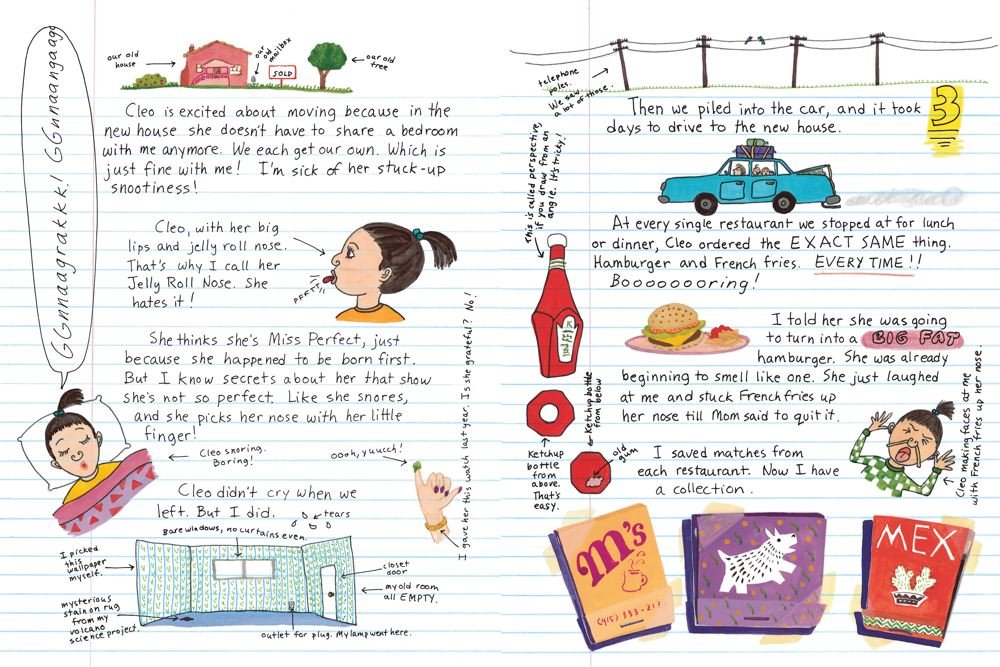 GGnnaagrakkk! GGnnaangaagg
our old
house
our
old
mailbox
SOLD
our old
tree
Cleo is excited about moving because in the
new house she doesn't have to share a bedroom
with me anymore. We each get our own. Which is
just fine with me! I'm sick of her stuck-up
snootiness!
Cleo, with her big
lips and jelly roll nose.
That's why I call her
Jelly Roll Nose. She
hates it!
PFFTT!
She thinks she's Miss Perfect, just
because she happened to be born first.
But I know secrets about her that show
she's not so perfect. Like she snores,
and she picks her nose with her little
finger!
Cleo snoring.
Boring!
oooh, yuuuch!
I gave her this watch last year. Is she grateful? No!
Cleo didn't cry when we
left. But I did.
tears
Bare windows, no curtains even.
I picked
this
wallpaper
myself.
closet
door
my old room
all EMPTY.
mysterious
stain on rug
from my
volcano
science project.
outlet for plug. My lamp went here.
telephone
poles.
We saw
a lot of those.
Then we piled into the car, and it took 3
days to drive to the new house.
This is called perspective,
if you draw from an
angle. It's tricky!
At every single restaurant we stopped at for lunch
or dinner, Cleo ordered the EXACT SAME thing.
Hamburger and French fries. EVERY TIME!!
Booooooooring!
I told her she was going
to turn into a BIG FAT
hamburger. She was already
beginning to smell like one. She just laughed
at me and stuck French fries up
her nose till Mom said to quit it.
Ketchup
bottle
from
above.
That's
easy.
Ketchup bottle
from below
old
gum
Cleo making faces at me
with French fries up her nose.
I saved matches from
each restaurant. Now I have
a collection.
M's
(415) 333-21?
MEX